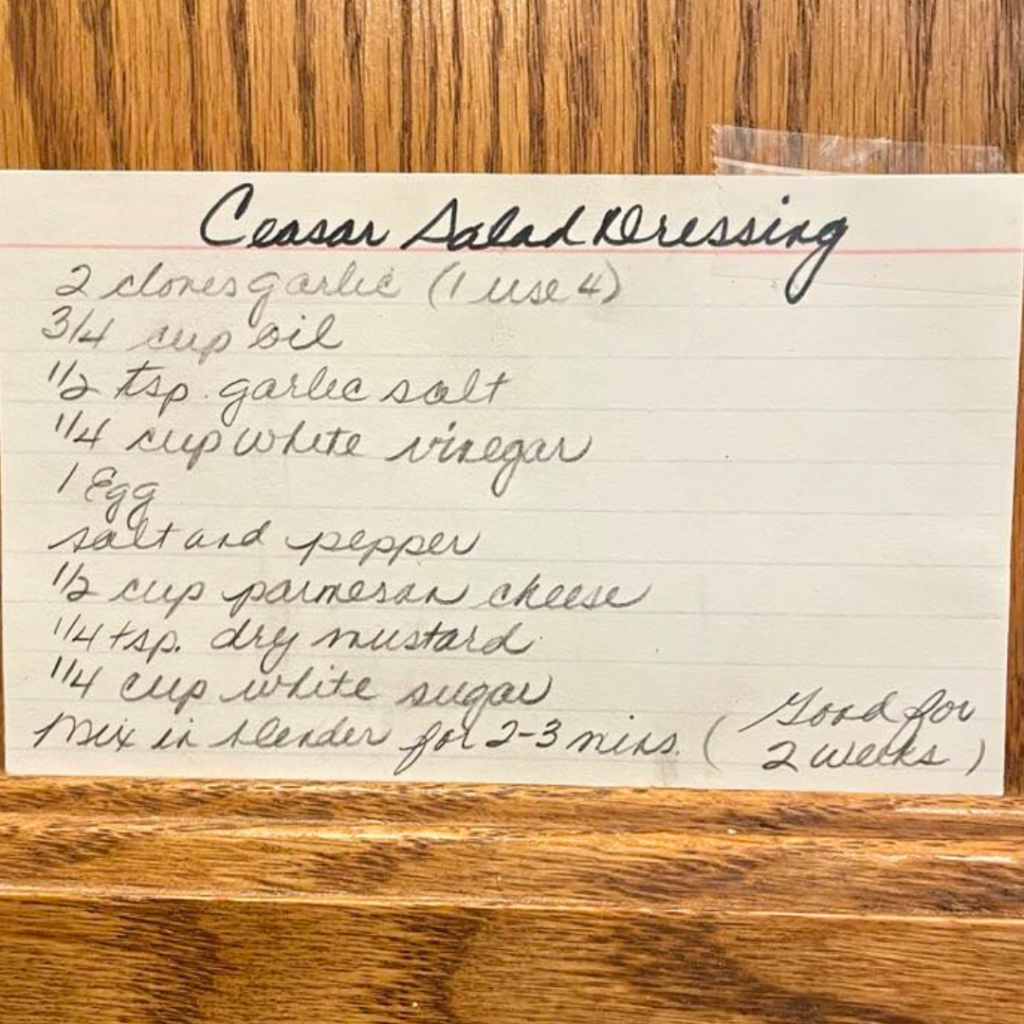 Ceasar Salad Dressing
2 cloves garlic (I use 4)
3/4 cup oil
1/2 tsp. garlic salt
1/4 cup white vinegar
1 Egg
salt and pepper
1/2 cup parmesan cheese
1/4 tsp. dry mustard
1/4 cup white sugar
Mix in blender for 2-3 mins. (Good for
2 weeks)